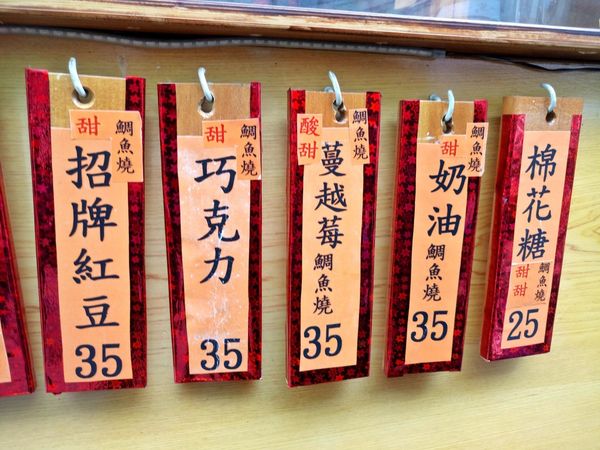 甜
鯛魚燒
招牌紅豆
35
甜
鯛魚燒
巧克力
35
酸甜
鯛魚燒
蔓越莓
鯛魚燒
35
甜
鯛魚燒
奶油
鯛魚燒
35
棉花糖
甜甜
鯛魚燒
25